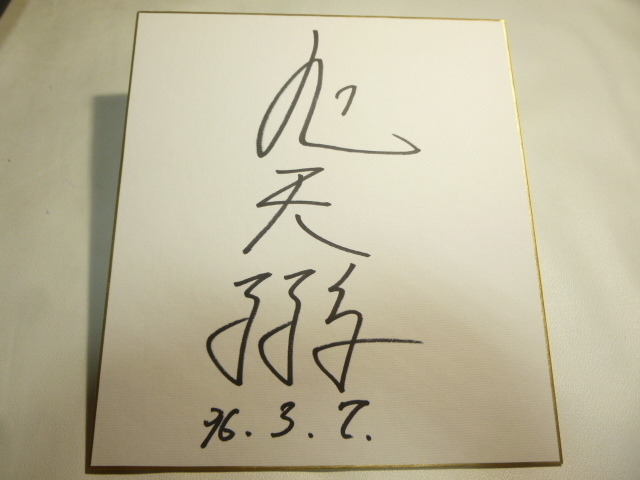 旭
天
鵬
96.3.7.